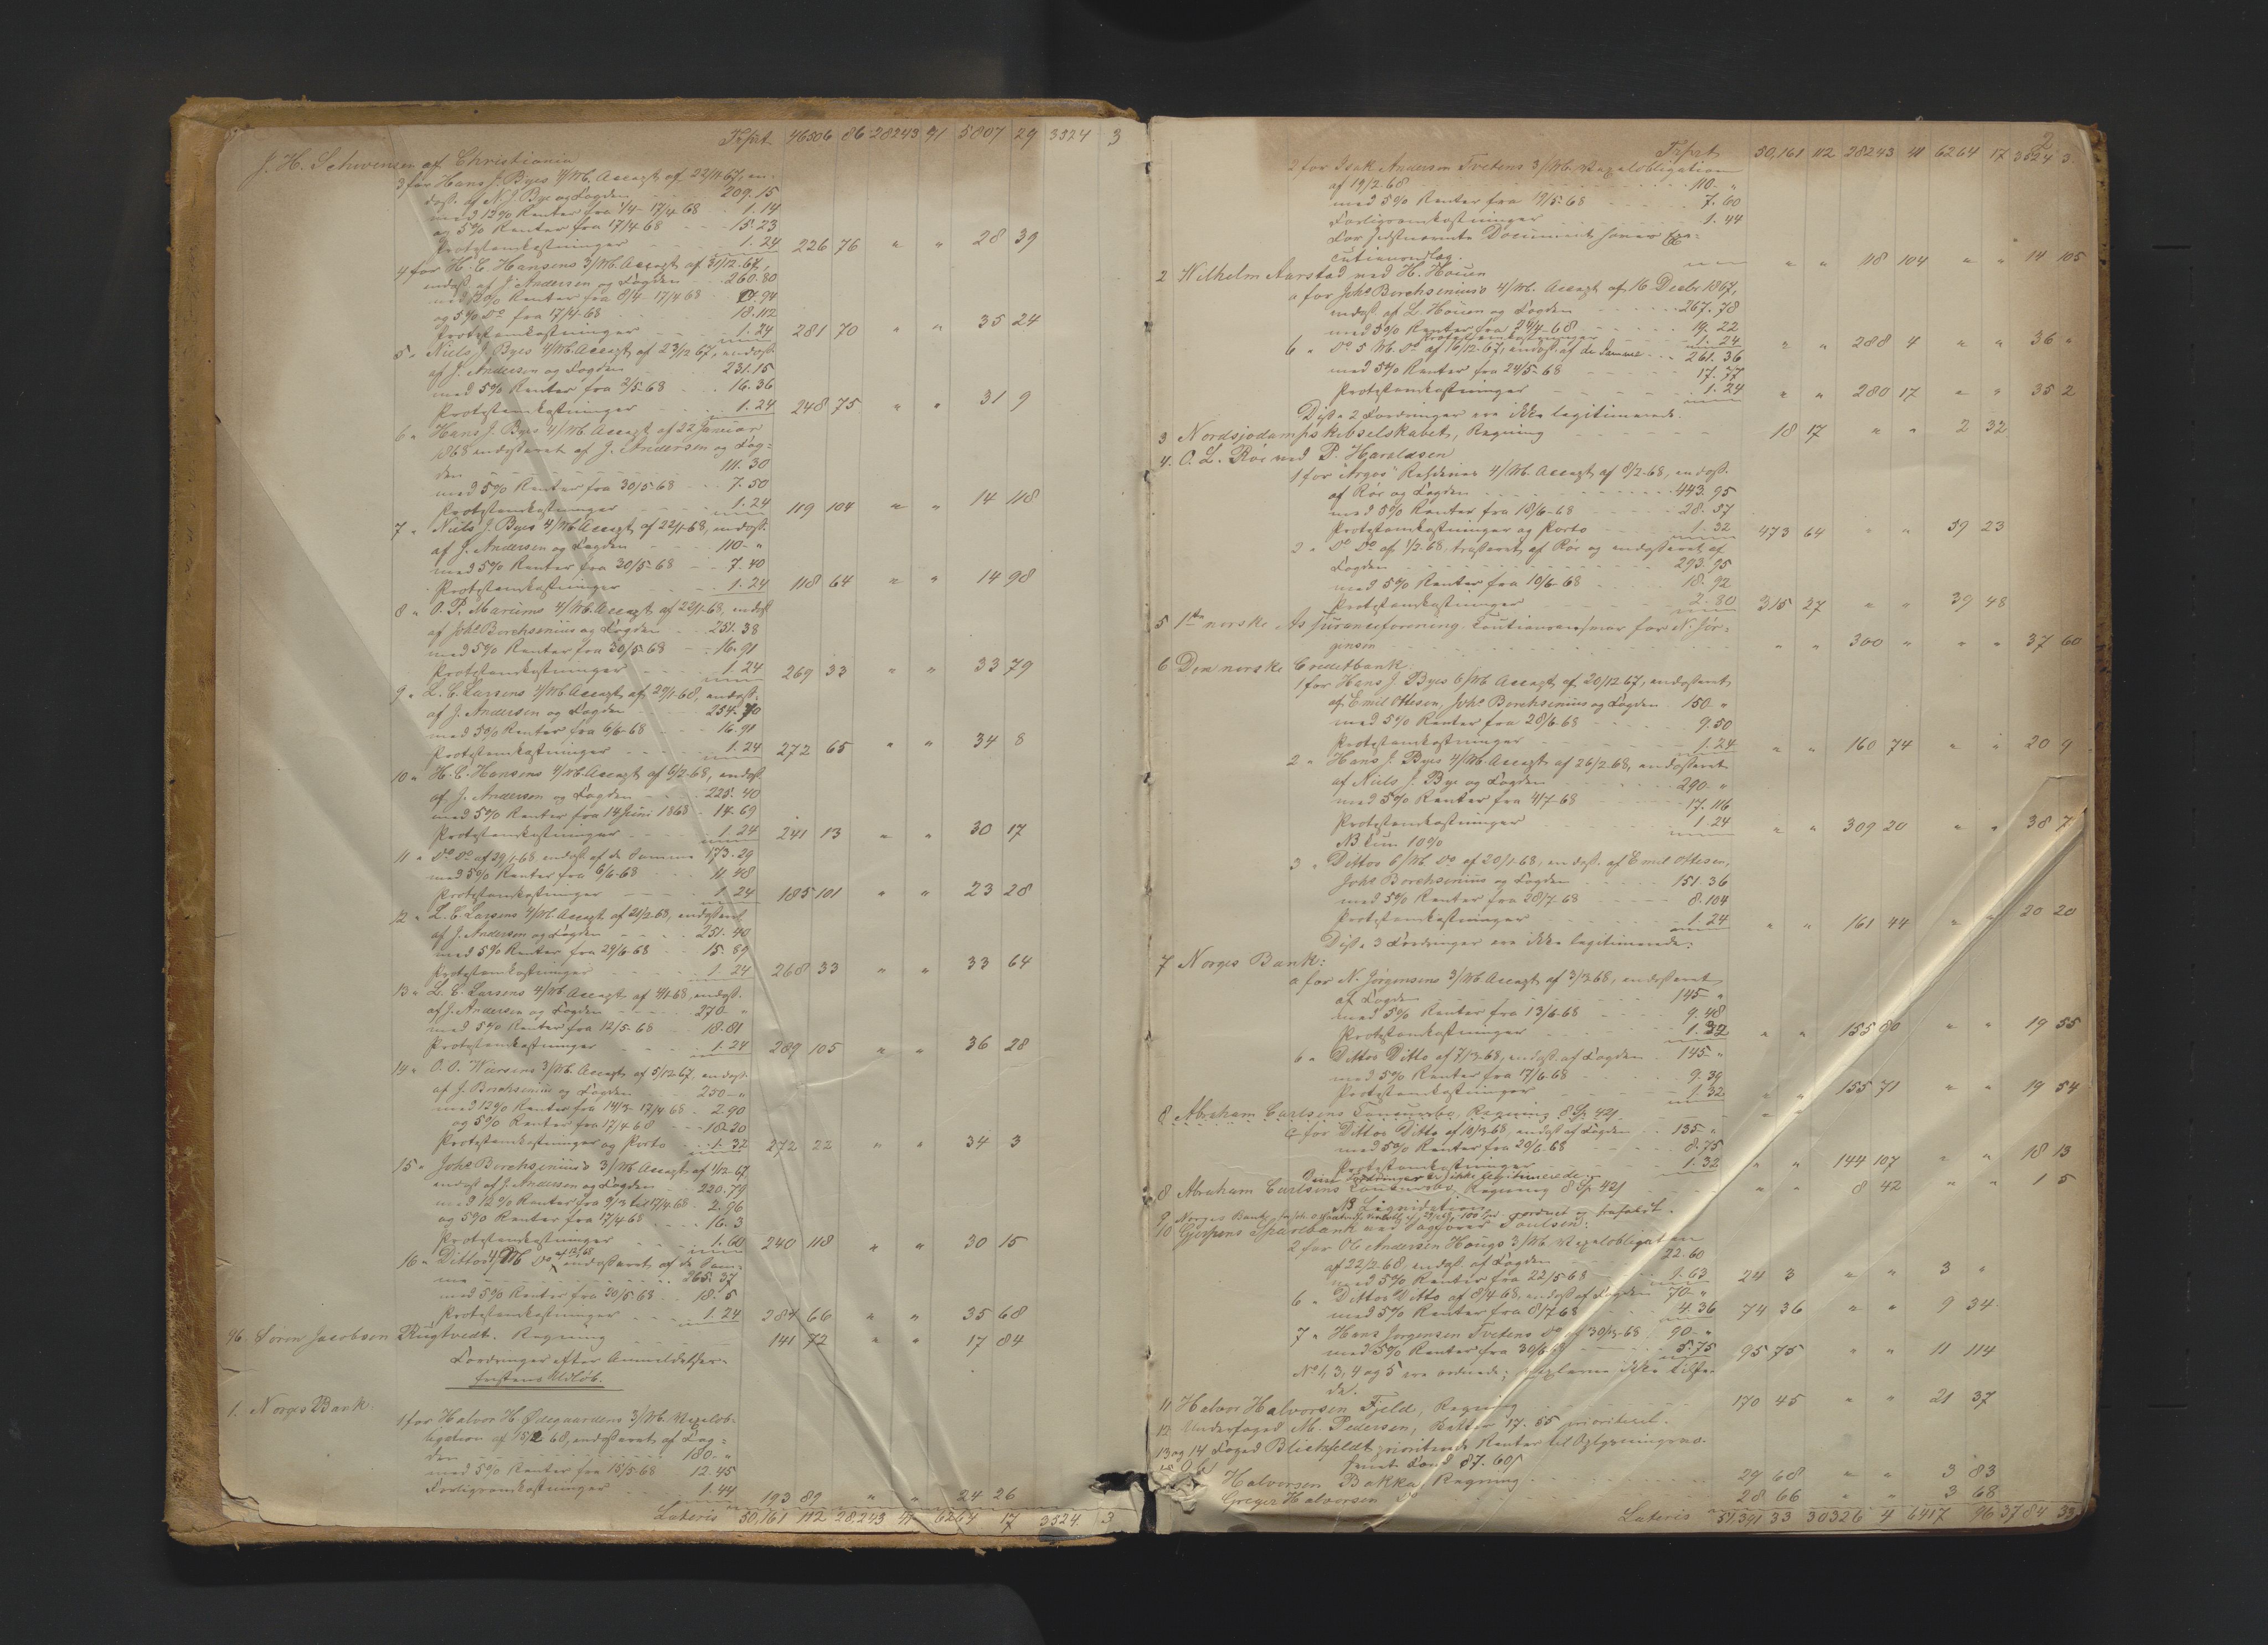 Trsprt 46506 86 28243 91 5807 29 3524 3
J. H. Schwensen af Christiania
3 for Hans J. Byes 4/Md. Accept af 22/11 67, en-
doss. af N. J. Bye og Fogden 209. 15
med 12% Renter fra 1/4 - 17/4 68 1. 14
og 5% Renter fra 17/4 68 15. 23
Protestomkostninger 1. 24 226 76 " " 28 39
4 for H. C. Hansens 3/Md. Accept af 31/12 67,
endoss. af J. Andersen og Fogden 260. 80
med 12% Renter fra 8/4 - 17/4 68 . 94
og 5% Do fra 17/4 68 18. 112
Protestomkostninger 1. 24 281 70 " " 35 24
5 " Niels J. Byes 4/Md. Accept af 23/12 67, endoss.
af J. Andersen og Fogden 231. 15
med 5% Renter fra 2/5 68 16. 36
Protestomkostninger 1. 24 248 75 " " 31 9
6 " Hans J. Byes 4/Md. Accept af 22 Januar
1868 endosseret af J. Andersen og Fog-
den 111. 30
med 5% Renter fra 30/5 68 7. 50
Protestomkostninger 1. 24 119 104 " " 14 118
7 " Niels J. Byes 4/Md. Accept af 22/1 68, endoss.
af J. Andersen og Fogden 110 - "
med 5% Renter fra 30/5 68 7. 40
Protestomkostninger 1. 24 118 64 " " 14 98
8 " O. P. Mariums 4/Md. Accept af 22/1 68, endoss.
af Johs Borchsenius og Fogden 251. 38
med 5% Renter fra 30/5 68 16. 91
Protestomkostninger 1. 24 269 33 " " 33 79
9 " L. C. Larsens 4/Md. Accept af 29/1 68, endoss.
af J. Andersen og Fogden 254. 70
med 5% Renter fra 6/6 68 16. 91
Protestomkostninger 1. 24 272 65 " " 34 8
10 " H. C. Hansens 4/Md. Accept af 6/2 68, endoss.
af J. Andersen og Fogden 225. 40
med 5% Renter fra 14 Juni 1868 14. 69
Protestomkostninger 1. 24 241 13 " " 30 17
11 " Do Do af 29/1 68 endoss. af de Samme 173. 29
med 5% Renter fra 6/6 68 11. 48
Protestomkostninger 1. 24 185 101 " " 23 28
12 " L. C. Larsens 4/Md. Accept af 21/2 68, endosseret
af J. Andersen og Fogden 251. 40
med 5% Renter fra 29/6 68 15. 89
Protestomkostninger 1. 24 268 33 " " 33 64
13 " L. C. Larsens 4/Md. Accept af 4/1 68, endoss.
af J. Andersen og Fogden 270 - "
med 5% Renter fra 12/5 68 18. 81
Protestomkostninger 1. 24 289 105 " " 36 28
14 " O. O. Wiersens 3/Md. Accept af 5/12 67, endoss.
af J. Borchsenius og Fogden 250 - "
med 12% Renter fra 14/3 - 17/4 68 2. 90
og 5% Renter fra 17/4 68 18. 20
Protestomkostninger og Porto 1. 32 272 22 " " 34 3
15 " Johs Borchsenius's 3/Md. Accept af 1/12 67,
endoss. af J. Andersen og Fogden 220. 79
med 12% Renter fra 9/3 til 17/4 68 2. 96
og 5% Renter fra 17/4 68 16. 3
Protestomkostninger 1. 60 240 118 " " 30 15
16 " Dittos 4/Md Do endosseret af de Sam-
me 265. 37
med 5% Renter fra 20/5 68 18. 5
Protestomkostninger 1. 24 284 66 " " 35 68
96. Søren Jacobsen Rugtvedt. Regning 141 72 " " 17 84
Fordringer efter Anmeldelses-
fristens Udløb.
1. Norges Bank.
1 for Halvor H. Ødegaardens 3/Md. Vexelob-
ligation af 15/2 68, endosseret af Fog-
den 180 - "
med 5% Renter fra 15/5 68 12. 45
Forligsomkostninger 1. 44 193 89 " " 24 26
Lateris 50,161 112 28,243 91 6264 17 3524 3
2
Trsprt 50,161 112 28243 91 6264 17 3524 3
2 for Isak Andersen Tvetens 3/Md. Vexelobligation
af 19/2 68 110 - "
med 5% Renter fra 19/5 68 7. 60
Forligsomkostninger 1. 44
For sidstnævnte Document haves Exe-
cutionsudlæg. " " 118 104 " " 14 105
2 Wilhelm Aarstad ved H. Houen
a for Johs Borchsenius's 4/Md. Accept af 16 Decbr 1867,
endoss. af L. Houen og Fogden 267. 78
med 5% Renter fra 24/4 68 19. 22
Protestomkostninger 1. 24 " " 288 4 " " 36 "
b " Do 5 Md. Do af 16/12 67, endoss. af de Samme 261. 36
med 5% Renter fra 24/5 68 17. 77
Protestomkostninger 1. 24 " " 280 17 " " 35 2
Disse 2 Fordringer ere ikke legitimerede.
3 Nordsjødampskibselskabet, Regning 18 17 " " 2 32
4. O. L. Røe ved P. Haraldsen
1 for "Argos" Rederies 4/Md. Accept af 8/2 68, endoss.
af Röe og Fogden 443. 95
med 5% Renter fra 18/6 68 28. 57
Protestomkostninger og Porto 1. 32 473 64 " " 59 23
2 " Do Do af 1/2 68, trasseret af Röe og endosseret af
Fogden 293. 95
med 5% Renter fra 10/6 68 18. 92
Protestomkostninger 2. 80 315 27 " " 39 48
5 1ste norske Assuranceforening. Cautionsansvar for N. Jör-
gensen " " 300 " " " 37 60
6 Den norske Creditbank:
1 for Hans J. Byes 6/Md. Accept af 20/12 67, endosseret
af Emil Ottesen, Johs Borchsenius og Fogden 150 - "
med 5% Renter fra 28/6 68 9. 50
Protestomkostninger 1. 24 " " 160 74 " " 20 9
2 " Hans J. Byes 4/Md. Accept af 26/2 68, endosseret
af Niels J. Bye og Fogden 290 - "
med 5% Renter fra 4/7 68 17. 116
Protestomkostninger 1. 24 " " 309 20 " " 38 7
NB kun 10%
3 " Dittos 6/Md. Do af 20/1 68, endoss. af Emil Ottesen,
Johs Borchsenius og Fogden 151. 36
med 5% Renter fra 28/7 68 8. 104
Protestomkostninger 1. 24 " " 161 44 " " 20 20
Disse 3 Fordringer ere ikke legitimerede:
7 Norges Bank:
a for N. Jörgensens 3/Md. Accept af 3/3 68, endosseret
af Fogden 145 - "
med 5% Renter fra 13/6 68 9. 48
Protestomkostninger 1. 32 " " 155 80 " " 19 55
b " Dittos Ditto af 7/3 68, endoss. af Fogden 145 - "
med 5% Renter fra 17/6 68 9. 39
Protestomkostninger 1. 32 " " 155 71 " " 19 54
8 Abraham Carlsens Concursbo, Regning 8 Sp 42/ " "
c for Dittos Ditto af 10/3 68, endoss. af Fogden 135 - "
med 5% Renter fra 20/6 68 8. 75
Protestomkostninger 1. 32 " " 144 107 " " 18 13
Disse Fordringer ere ikke legitimerede:
8 Abraham Carlsens Concursbo Regning 8 Sp 42/ " " 8 42 " " 1 5
NB Liqvidation
9 Norges Bank, ordnet og frafaldt.
10 Gjerpens Sparebank ved Sagfører Paulsen:
2 for Ole Andersen Hougs 3/Md. Vexelobligation
af 22/2 68, endoss. af Fogden 22. 60
med 5% Renter fra 22/5 68 1. 63 24 3 " " 3 "
6 " Dittos Ditto af 8/4 68, endoss. af Fogden 70 - "
med 5% Renter fra 8/7 68 4. 36 74 36 " " 9 34
7 " Hans Jorgensen Tvetens Do af 30/3 68 90 - "
med 5% Renter fra 30/6 68 5. 75 95 75 " " 11 114
No 1, 3, 4 og 5 ere ordnede; Vexlerne ikke tilste-
de.
11 Halvor Halvorsen Fjeld, Regning 170 45 " " 21 37
12 Underfoged M. Pedersen, Skatter 17. 55 prioriteret.
13 og 14 Foged Blichfeldt prioriterede Renter til Oplysningsvæ-
senets Fond 87. 60/
Halvorsen Bakka Regning 29 68 " " 3 83
Greger Halvorsen Do 28 66 " " 3 68
Lateris 51,391 33 30326 4 6417 96 3784 33